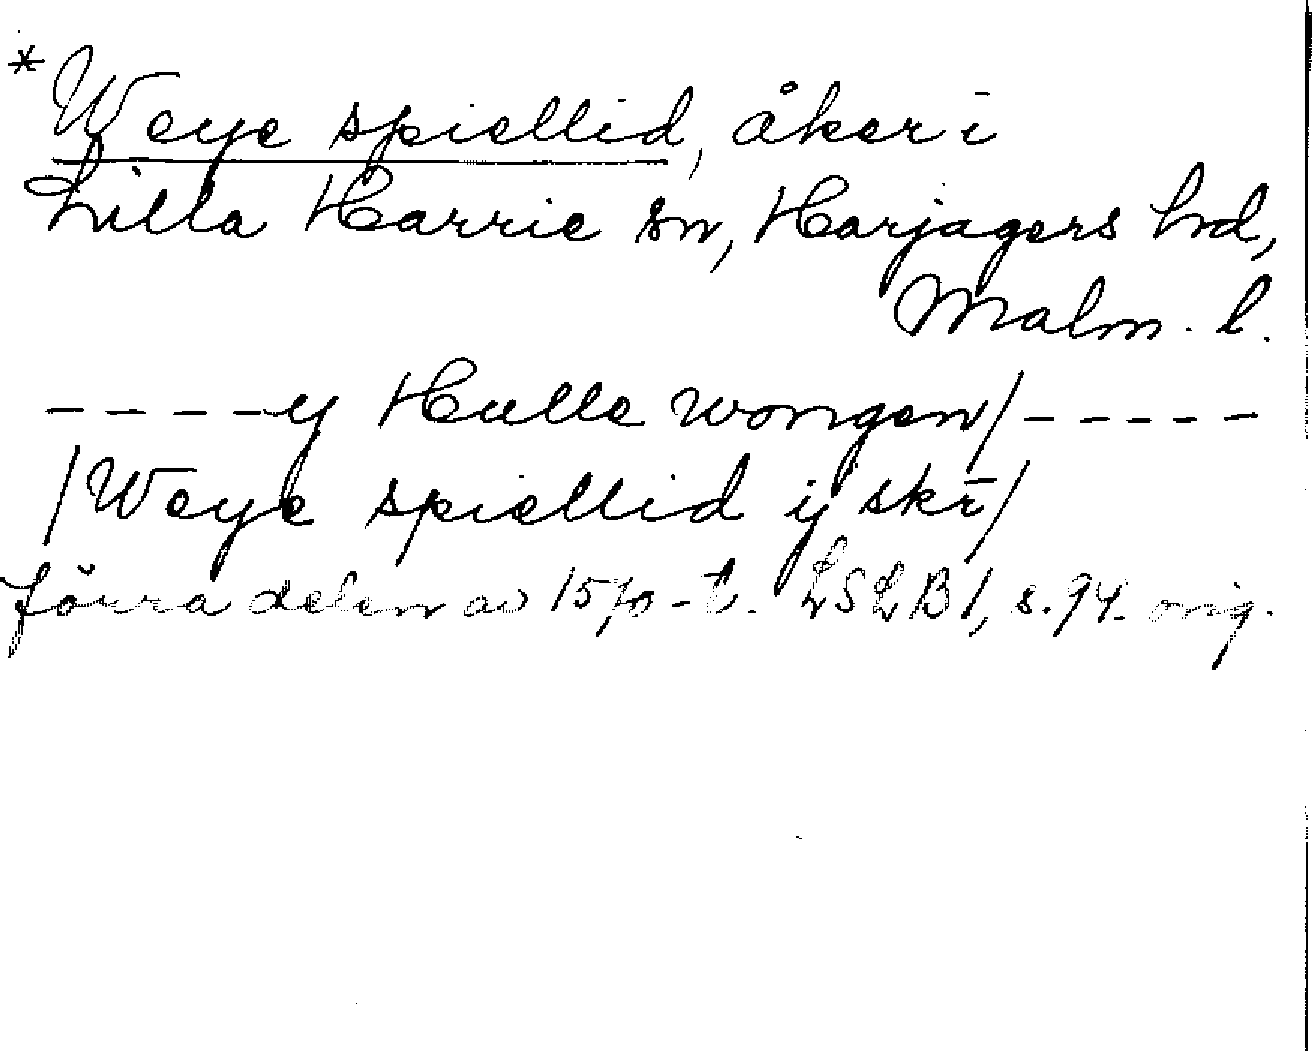 *Weye spiellid, åker i
Lilla Harrie sn, Harjagers hd,
Malm. l.
- - - - y Hulle wongen/ - - - - -
/Weye spiellid ij skr̄/
förra delen av 1570-t. LSLB1, s. 94. orig.